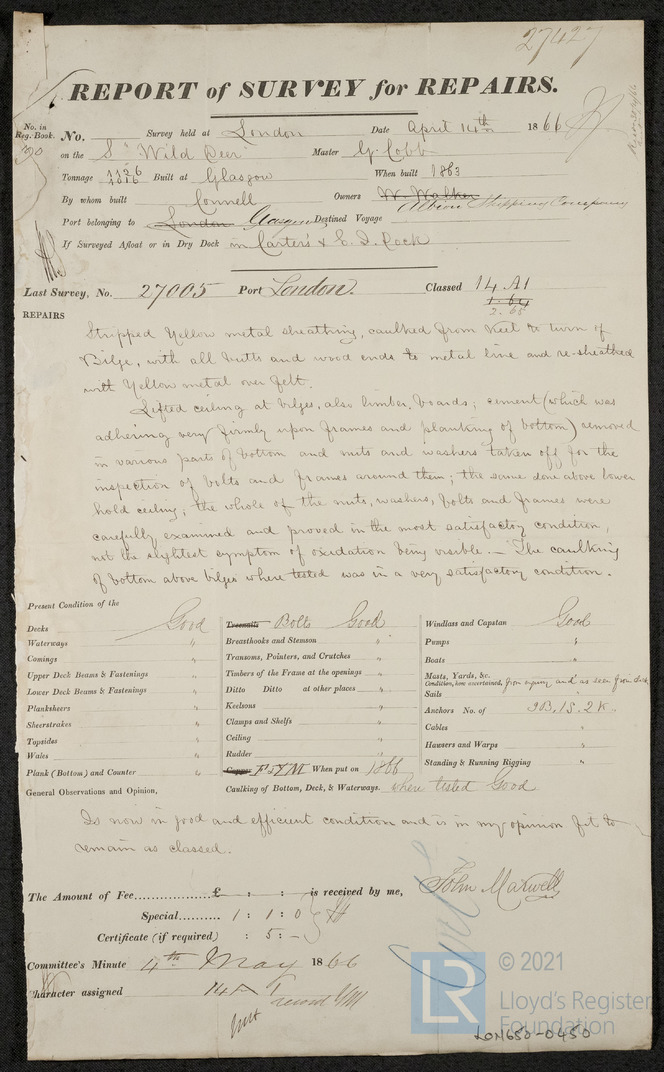 27427
REPORT of SURVEY for REPAIRS.
No. in Reg. Book. No. Survey held at London Date April 14th 1866
on the S "Wild Deer" Master G. Cobb
Tonnage 1126 1016 Built at Glasgow When built 1863
By whom built Connell Owners W. Walker Albion Shipping Company
Port belonging to London Glasgow Destined Voyage
If Surveyed Afloat or in Dry Dock in Carter's & E. I. Dock
Last Survey, No. 27005 Port London. Classed 14 A1
1.64
2.65
REPAIRS
Stripped Yellow metal sheathing, caulked from Keel to turn of
Bilge, with all butts and wood ends to metal line and re-sheathed
with Yellow metal over felt.
Lifted ceiling at bilges, also limber boards; cement (which was
adhering very firmly upon frames and planking of bottom) removed
in various parts of bottom and nuts and washers taken off for the
inspection of bolts and frames around them; the same done above lower
hold ceiling; the whole of the nuts, washers, bolts and frames were
carefully examined and proved in the most satisfactory condition,
not the slightest symptom of oxidation being visible. — The caulking
of bottom above bilges where tested was in a very satisfactory condition.
Present Condition of the
Decks Good
Waterways "
Comings "
Upper Deck Beams & Fastenings "
Lower Deck Beams & Fastenings "
Planksheers "
Sheerstrakes "
Topsides "
Wales "
Plank (Bottom) and Counter "
Treenails Bolts Good
Breasthooks and Stemson "
Transoms, Pointers, and Crutches "
Timbers of the Frame at the openings "
Ditto Ditto at other places "
Keelsons "
Clamps and Shelfs "
Ceiling "
Rudder "
Copper F & YM When put on 1866
Caulking of Bottom, Deck, & Waterways. where tested Good
Windlass and Capstan Good
Pumps "
Boats "
Masts, Yards, &c. Condition, how ascertained, from inquiry and as seen from deck
Sails
Anchors No. of 3B. 1S. 2K.
Cables "
Hawsers and Warps "
Standing & Running Rigging "
General Observations and Opinion,
Is now in good and efficient condition and is in my opinion fit to
remain as classed.
The Amount of Fee £ : : is received by me, John Maxwell
Special 1 : 1 : 0
Certificate (if required) : 5 : -
Committee's Minute 4th May 1866
Character assigned 14 A 1
record YM
© 2021
LR Lloyd's Register Foundation
LON650-0450